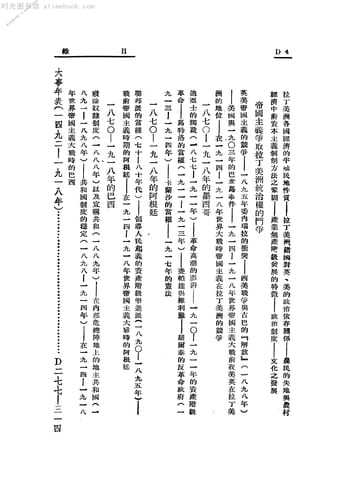 D 4
目 錄
拉丁美洲各國經濟的半殖民地性質——拉丁美洲諸國對英、美的政治依存關係——農民的失地與農村
經濟中前資本主義剝削方法之鞏固——產業無產階級發展的特徵——政治制度——文化之發展
帝國主義爭取拉丁美洲統治權的鬥爭
英美帝國主義的競爭——一八九五年委內瑞拉的衝突——西美戰爭與古巴的『解放』(一八九八年)
——美國與一九〇三年的巴拿馬事件——一九一四—一九一八年世界帝國主義大戰前夜英美在拉丁美
洲的地位——在一九一四—一九一八年世界帝國主義大戰時英美帝國主義在拉丁美洲的競爭
一八七〇—一九一八年的墨西哥
的獨裁(一八七七—一九一一年)——革命高潮的澎湃——一九一〇—一九一一年的資產階級
革命——馬特洛的當權(一九一一—一九一三年)——查帕達與維利雅——胡爾泰的反革命政府(一
九一三—一九一四年)——卡蘭沙的當權——一九一七年的憲法
一八七〇—一九一八年的阿根廷
的當權(七十—八十年代)——領導人民起義的資產階級急進派(一八九〇—一八九五年)——
戰前帝國主義時期的阿根廷——在一九一四—一九一八年世界帝國主義大戰時的阿根廷
一八七〇—一九一八年的巴西
廢除奴隸制度(一八八八年)以及宣佈共和(一八八九年)——在內部危機陣地上的地主共和國(一
八八九—一八九八年)——共和國制度的穩定(一八九八—一九一四年)——在一九一四—一九一八年世界帝國主義
大戰時的巴西
大事年表(一四九二—一九一八年)……………D二七七—三一四
时光图书馆 atimebook.com